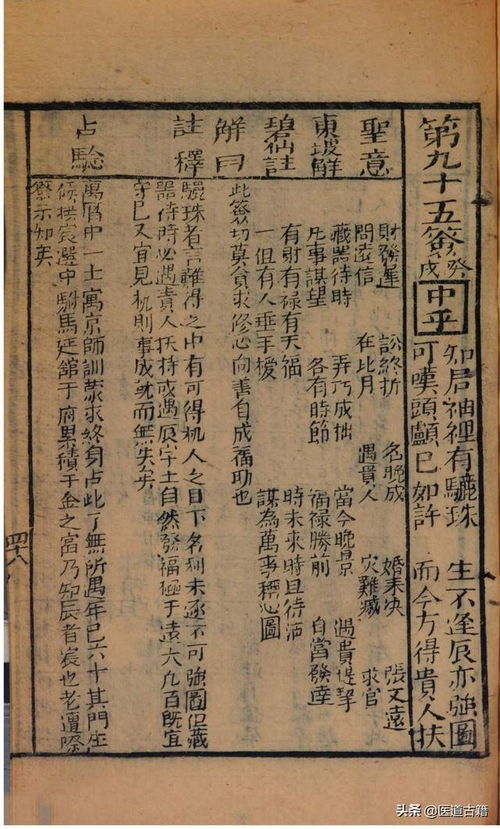 第九十五簽 癸戊 中平
知君袖裡有驪珠 生不逢辰亦強圖
可嘆頭顱已如許 而今方得貴人扶
聖意
財發遲 訟終折 名晚成 婚未决 張文遠
問遠信 在此月 遇貴人 灾難滅 求官
東坡解
藏器待時 弄巧成拙 當今晚景 遇貴提挈
凡事謀望 各有時節 福禄勝前 自當發達
碧仙註
有財有禄有天福 時未來時且待沽
一但有人垂手援 謀為萬事稱心圖
解曰
此簽切莫貪求修心向善自成福助也
註釋
驪珠者言難得之中有可得机人之目下名利未遂不可強圖但藏
器待時必遇貴人扶持或遇辰字土自然發福極于遠六九百既宜
守已又宜見机則事成就而無失矣
占驗
萬曆中一士寓京師訓蒙求終身占此了無所遇年已六十其門生
候拱宸選中駙馬延舘于府累積千金之富乃知辰者宸也老遭際
示如矣
四十八
头条 @医道古籍